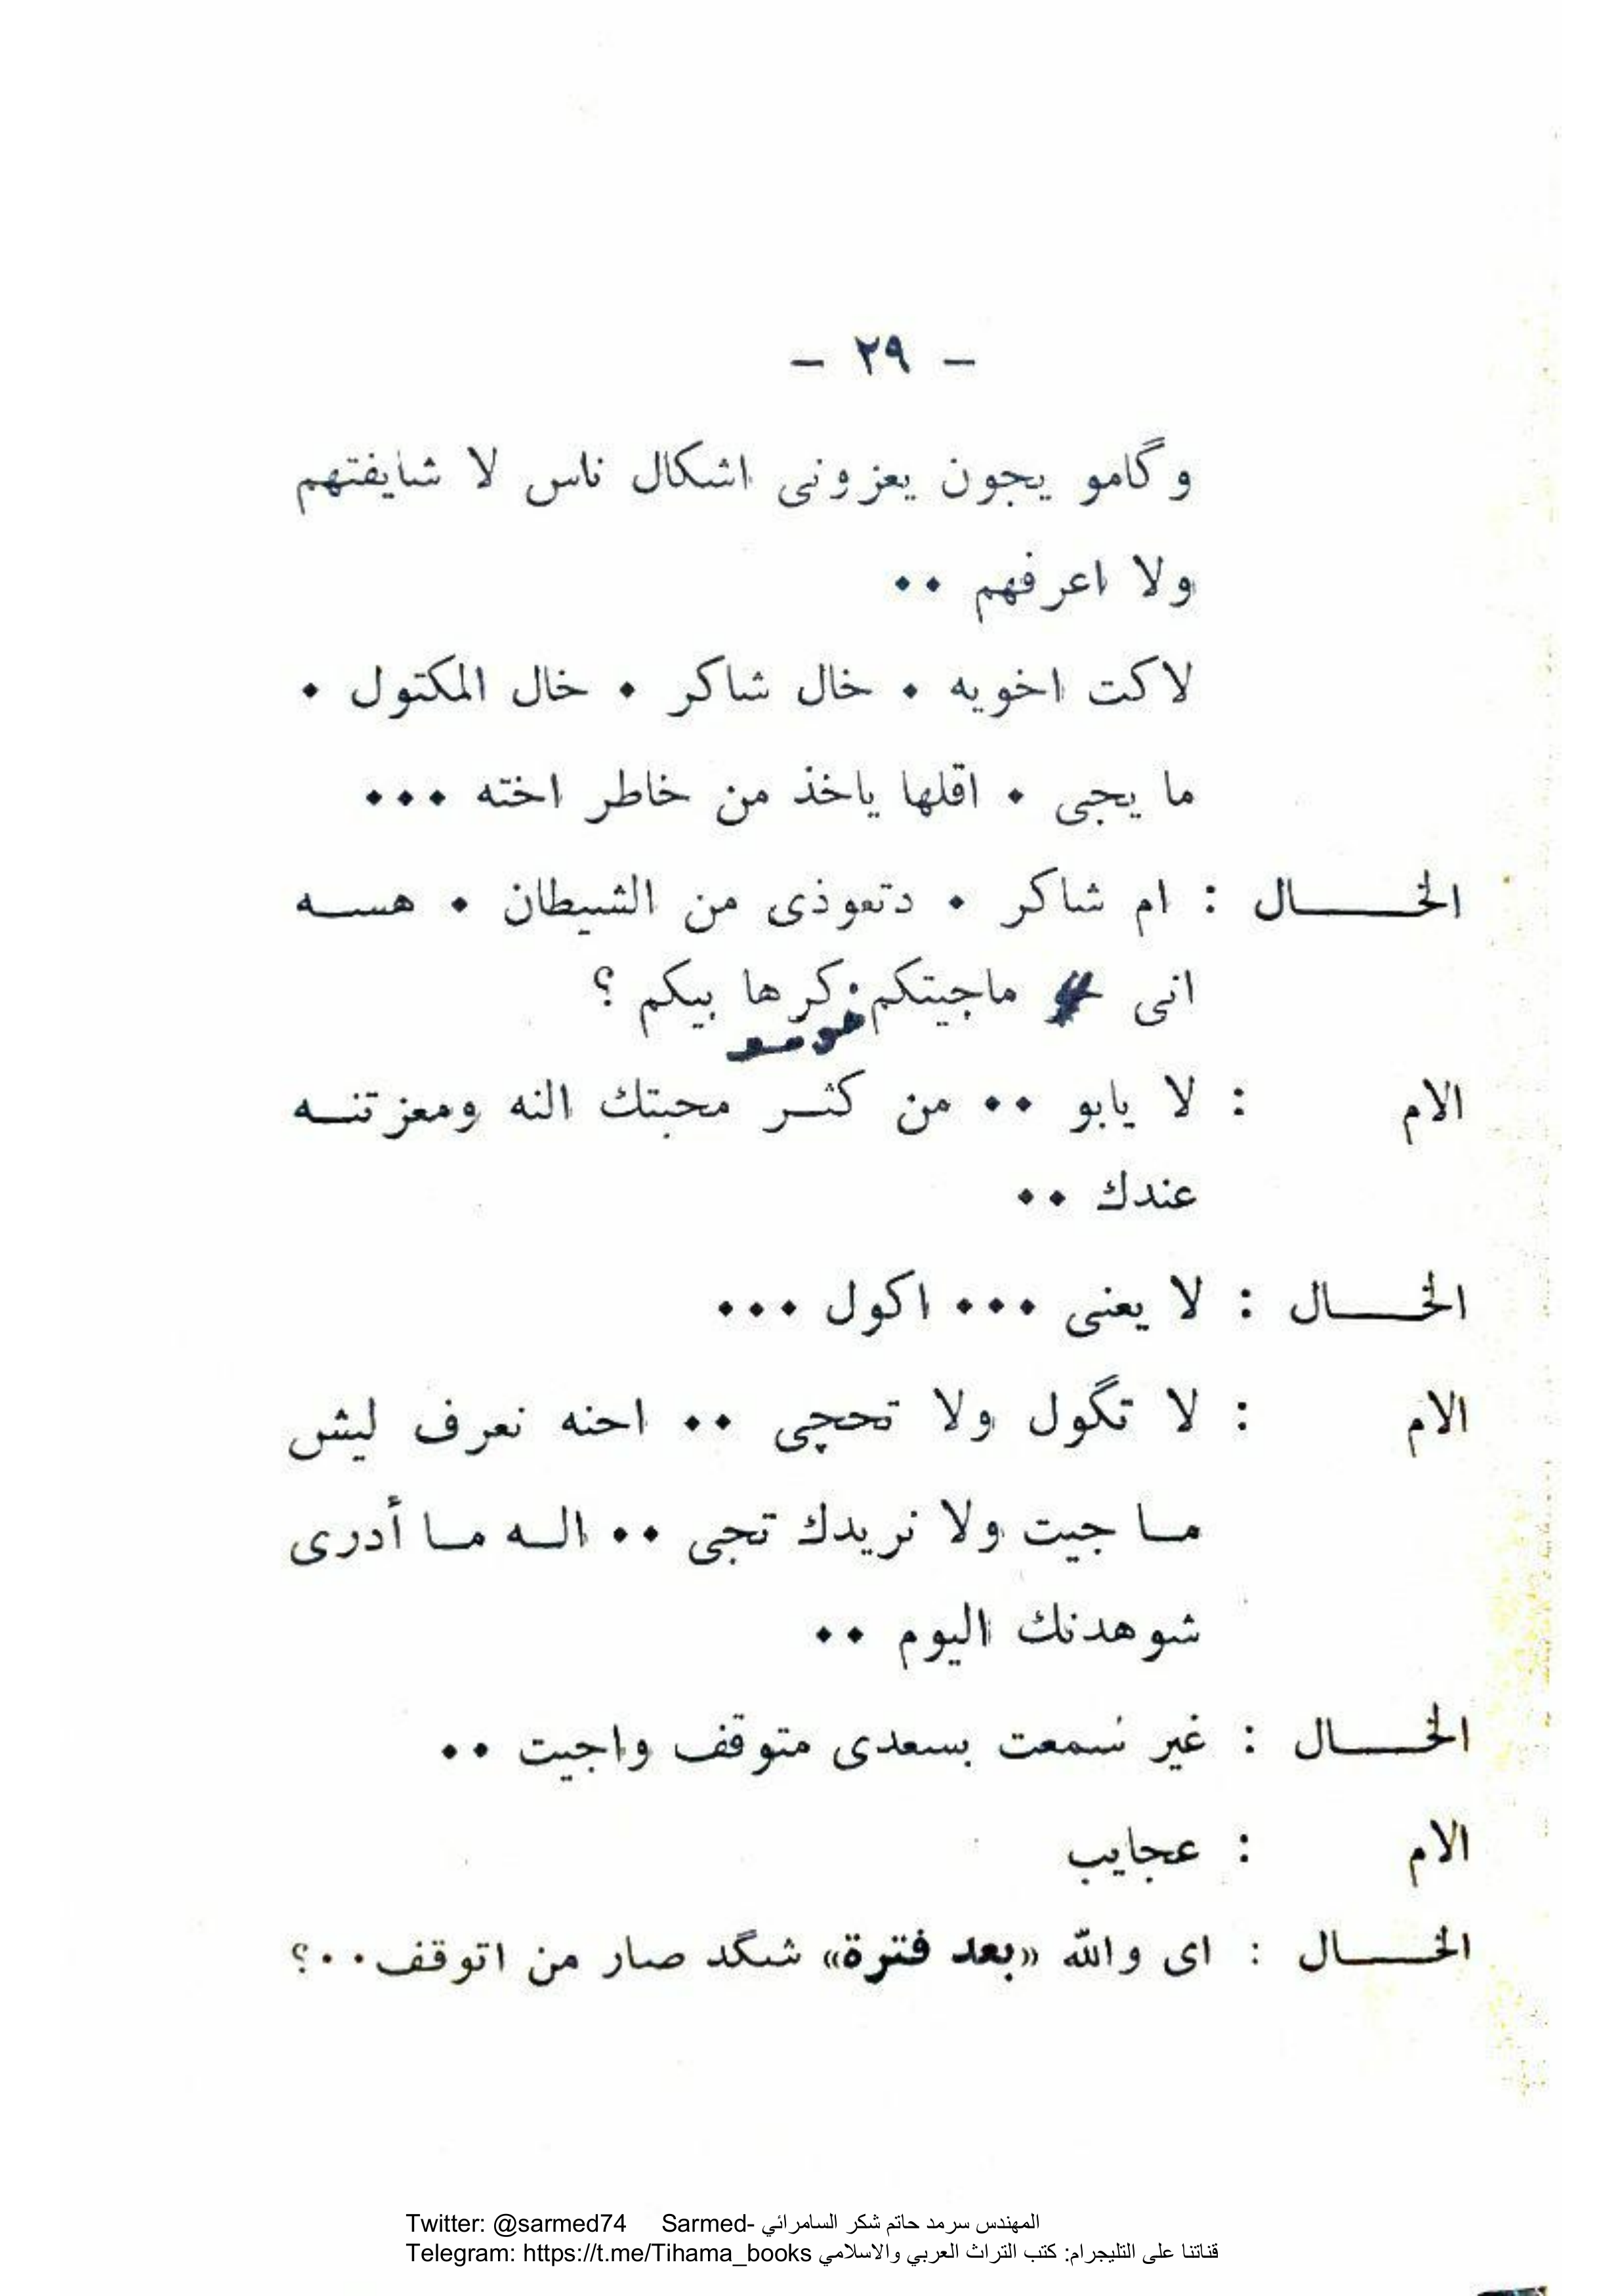 - ٢٩ -
وگامو يجون يعزونى اشكال ناس لا شايفتهم
ولا اعرفهم ٠٠
لاكت اخويه ٠ خال شاكر ٠ خال المكتول ٠
ما يجى ٠ اقلها ياخذ من خاطر اخته ٠٠٠
الخـــــال : ام شاكر ٠ دتعوذى من الشيطان ٠ هســه
انى ماجيتكم كرها بيكم ؟
الام : لا يابو ٠٠ من كثــر محبتك النه ومعزتنــه
عندك ٠٠
الخـــــال : لا يعنى ٠٠٠ اكول ٠٠٠
الام : لا تگول ولا تحچى ٠٠ احنه نعرف ليش
مــا جيت ولا نريدك تجى ٠٠ الــه مــا أدرى
شوهدنك اليوم ٠٠
الخـــــال : غير سمعت بسعدى متوقف واجيت ٠٠
الام : عجايب
الخـــــال : اى والله «بعد فترة» شگد صار من اتوقف٠٠؟
Twitter: @sarmed74 Sarmed- المهندس سرمد حاتم شكر السامرائي
Telegram: https://t.me/Tihama_books قناتنا على التليجرام: كتب التراث العربي والاسلامي